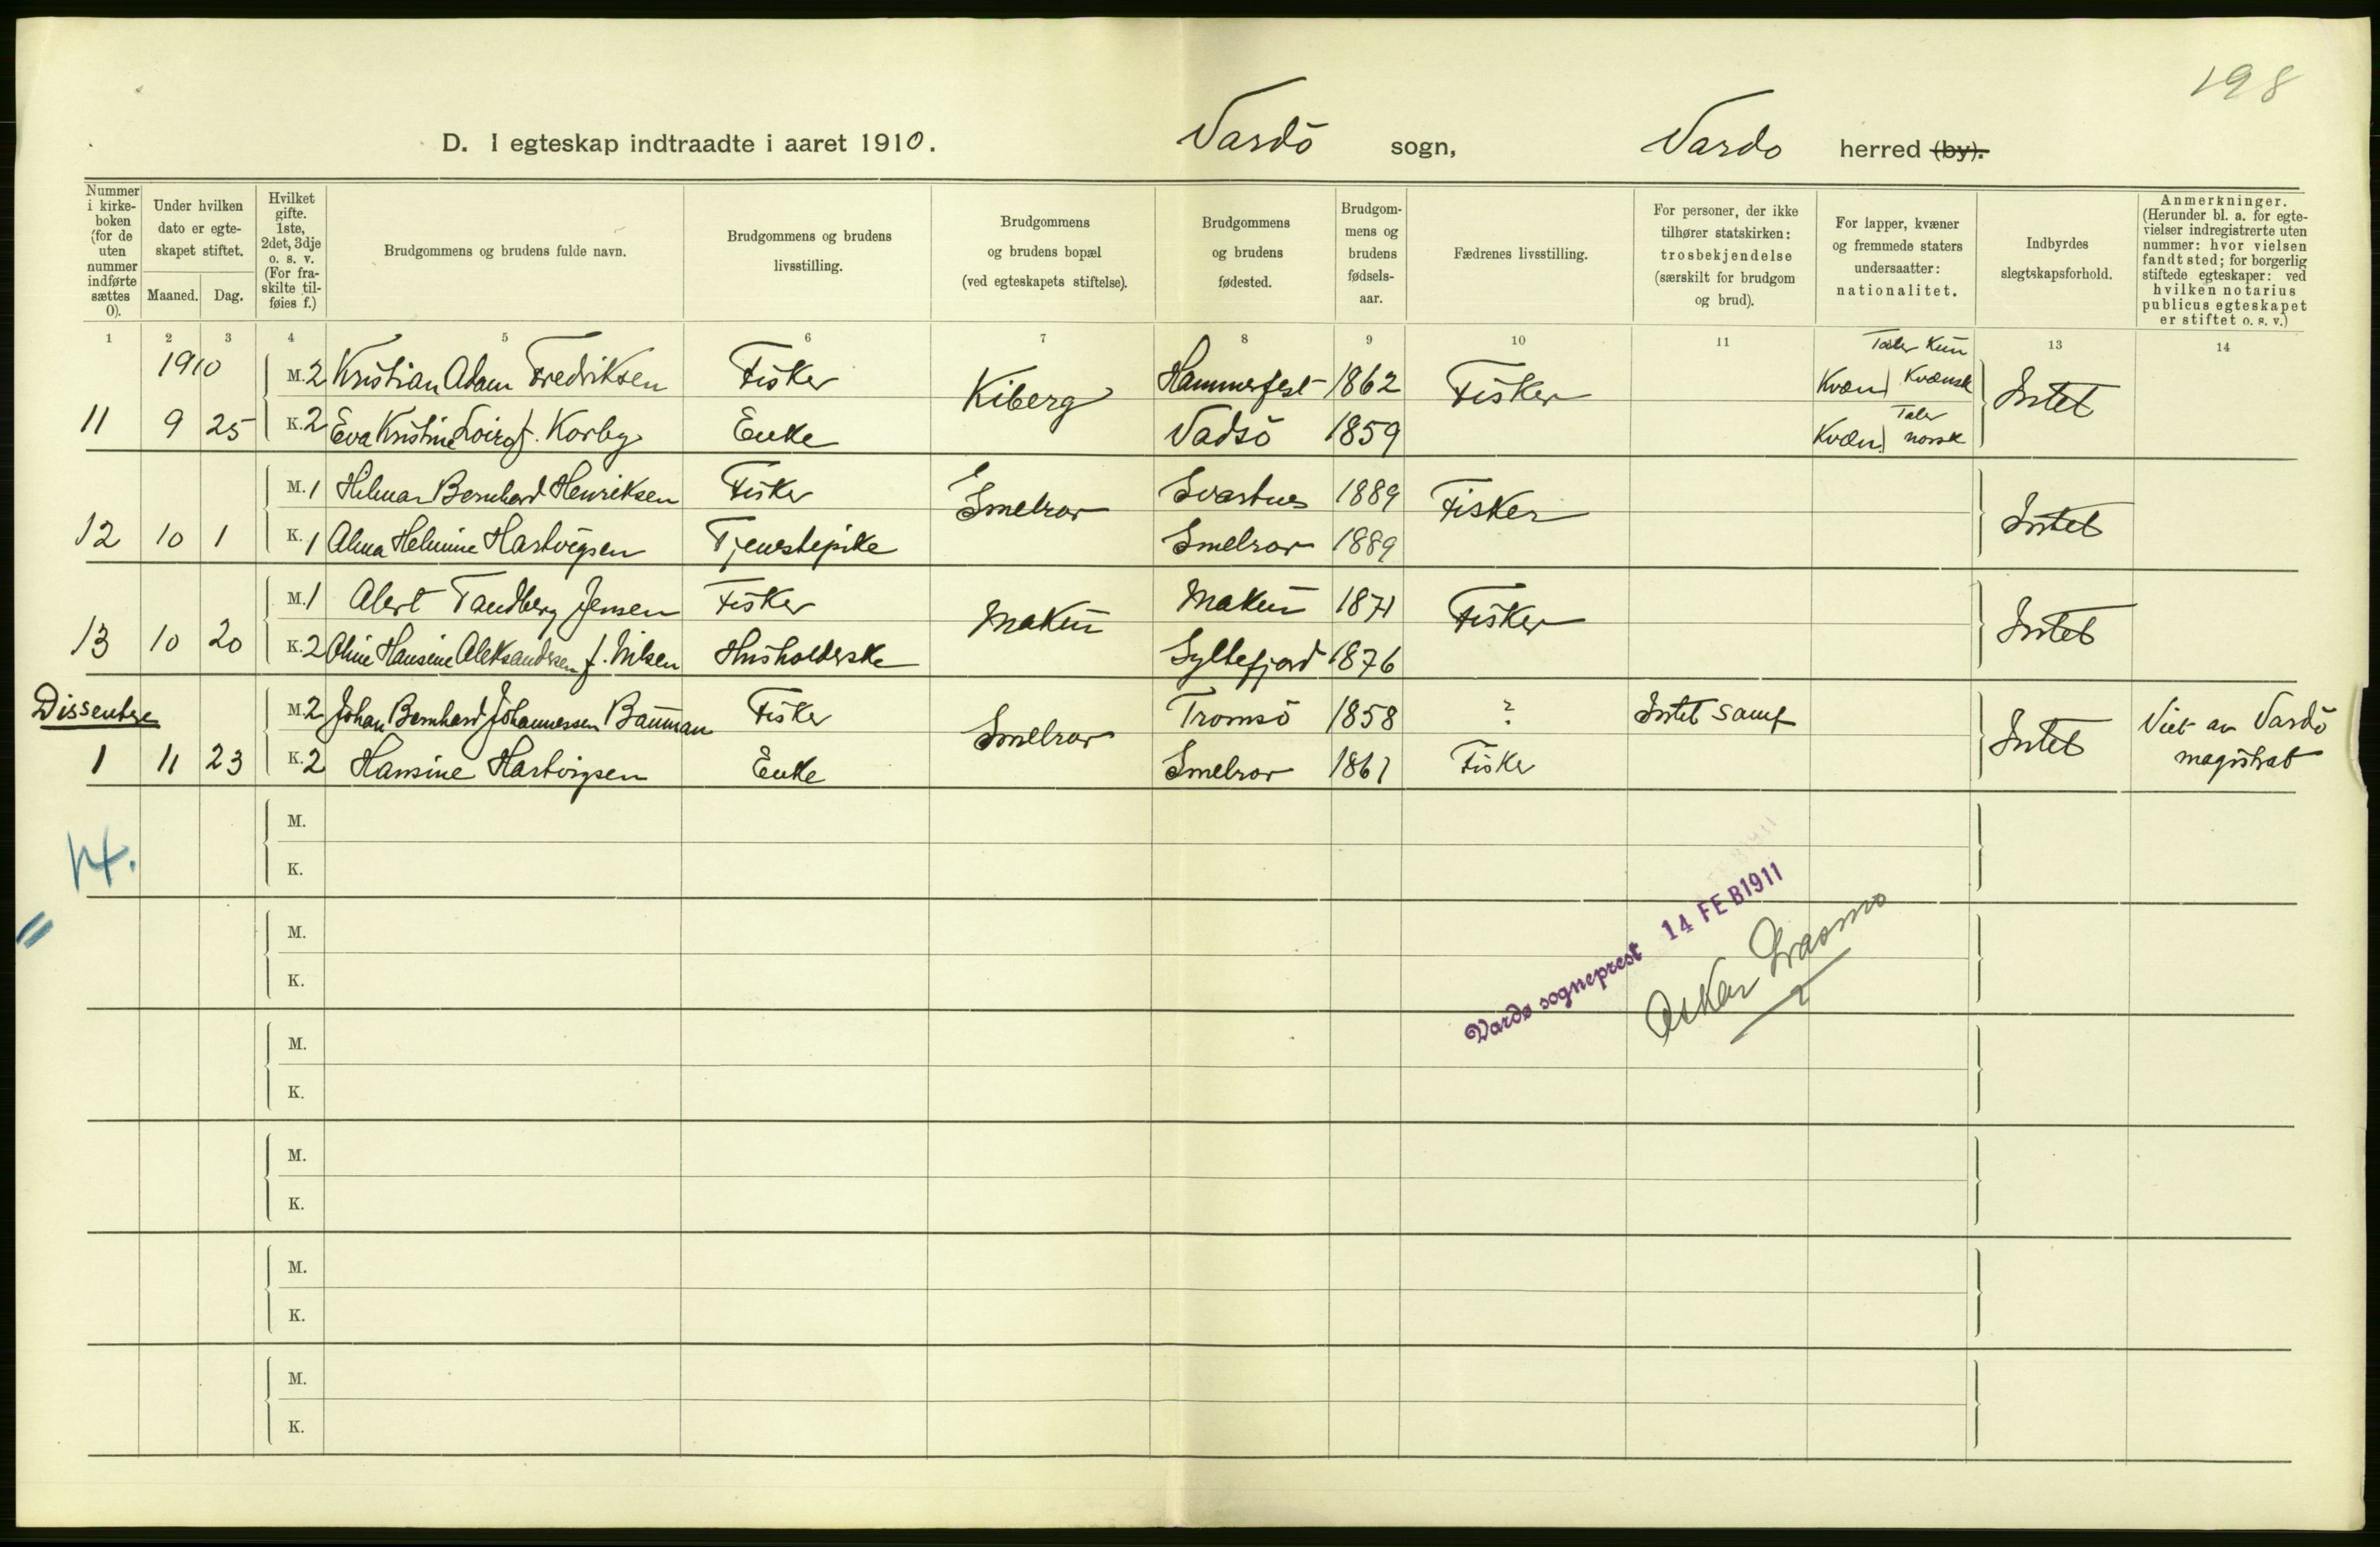 198
D. I egteskap indtraadte i aaret 1910. Vardö sogn, Vardo herred (by).
Nummer i kirke-boken (for de uten nummer indførte sættes 0).
Under hvilken dato er egte-skapet stiftet.
Maaned. Dag.
Hvilket gifte. 1ste, 2det, 3dje o. s. v. (For fra-skilte til-føies f.)
Brudgommens og brudens fulde navn.
Brudgommens og brudens livsstilling.
Brudgommens og brudens bopæl (ved egteskapets stiftelse).
Brudgommens og brudens fødested.
Brudgom-mens og brudens fødsels-aar.
Fædrenes livsstilling.
For personer, der ikke tilhører statskirken: trosbekjendelse (særskilt for brudgom og brud).
For lapper, kvæner og fremmede staters undersaatter: nationalitet.
Indbyrdes slegtskapsforhold.
Anmerkninger. (Herunder bl. a. for egte-vielser indregistrerte uten nummer: hvor vielsen fandt sted; for borgerlig stiftede egteskaper: ved hvilken notarius publicus egteskapet er stiftet o. s. v.)
1 2 3 4 5 6 7 8 9 10 11 13 14
1910 M. 2 Kristian Adam Fredriksen Fisker Kiberg Hammerfest 1862 Fisker Kvæn Taler Kun Kvænsk Intet
11 9 25 K. 2 Eva Kristine f. Korby Enke Vadsö 1859 Kvæn Taler norsk
M. 1 Hilmar Bernhard Henriksen Fisker Smelror Svartnes 1889 Fisker Intet
12 10 1 K. 1 Alma Helmine Hartvigsen Tjenestepike Smelror 1889
M. 1 Alert Tandberg Jensen Fisker Makeü Makeü 1871 Fisker Intet
13 10 20 K. 2 Oline Hansine Aleksandersen f. Nilsen Husholderske Syltefjord 1876
Dissentere M. 2 Johan Bernhard Johannessen Baüman Fisker Smelror Tromsö 1858 ? Intet samf Intet Viet av Vardö magistrat
1 11 23 K. 2 Hansine Hartvigsen Enke Smelror 1861 Fisker
M.
14.
K.
M.
K.
14 FEB 1911
Vardø sogneprest
Oskar
M.
K.
M.
K.
M.
K.
M.
K.